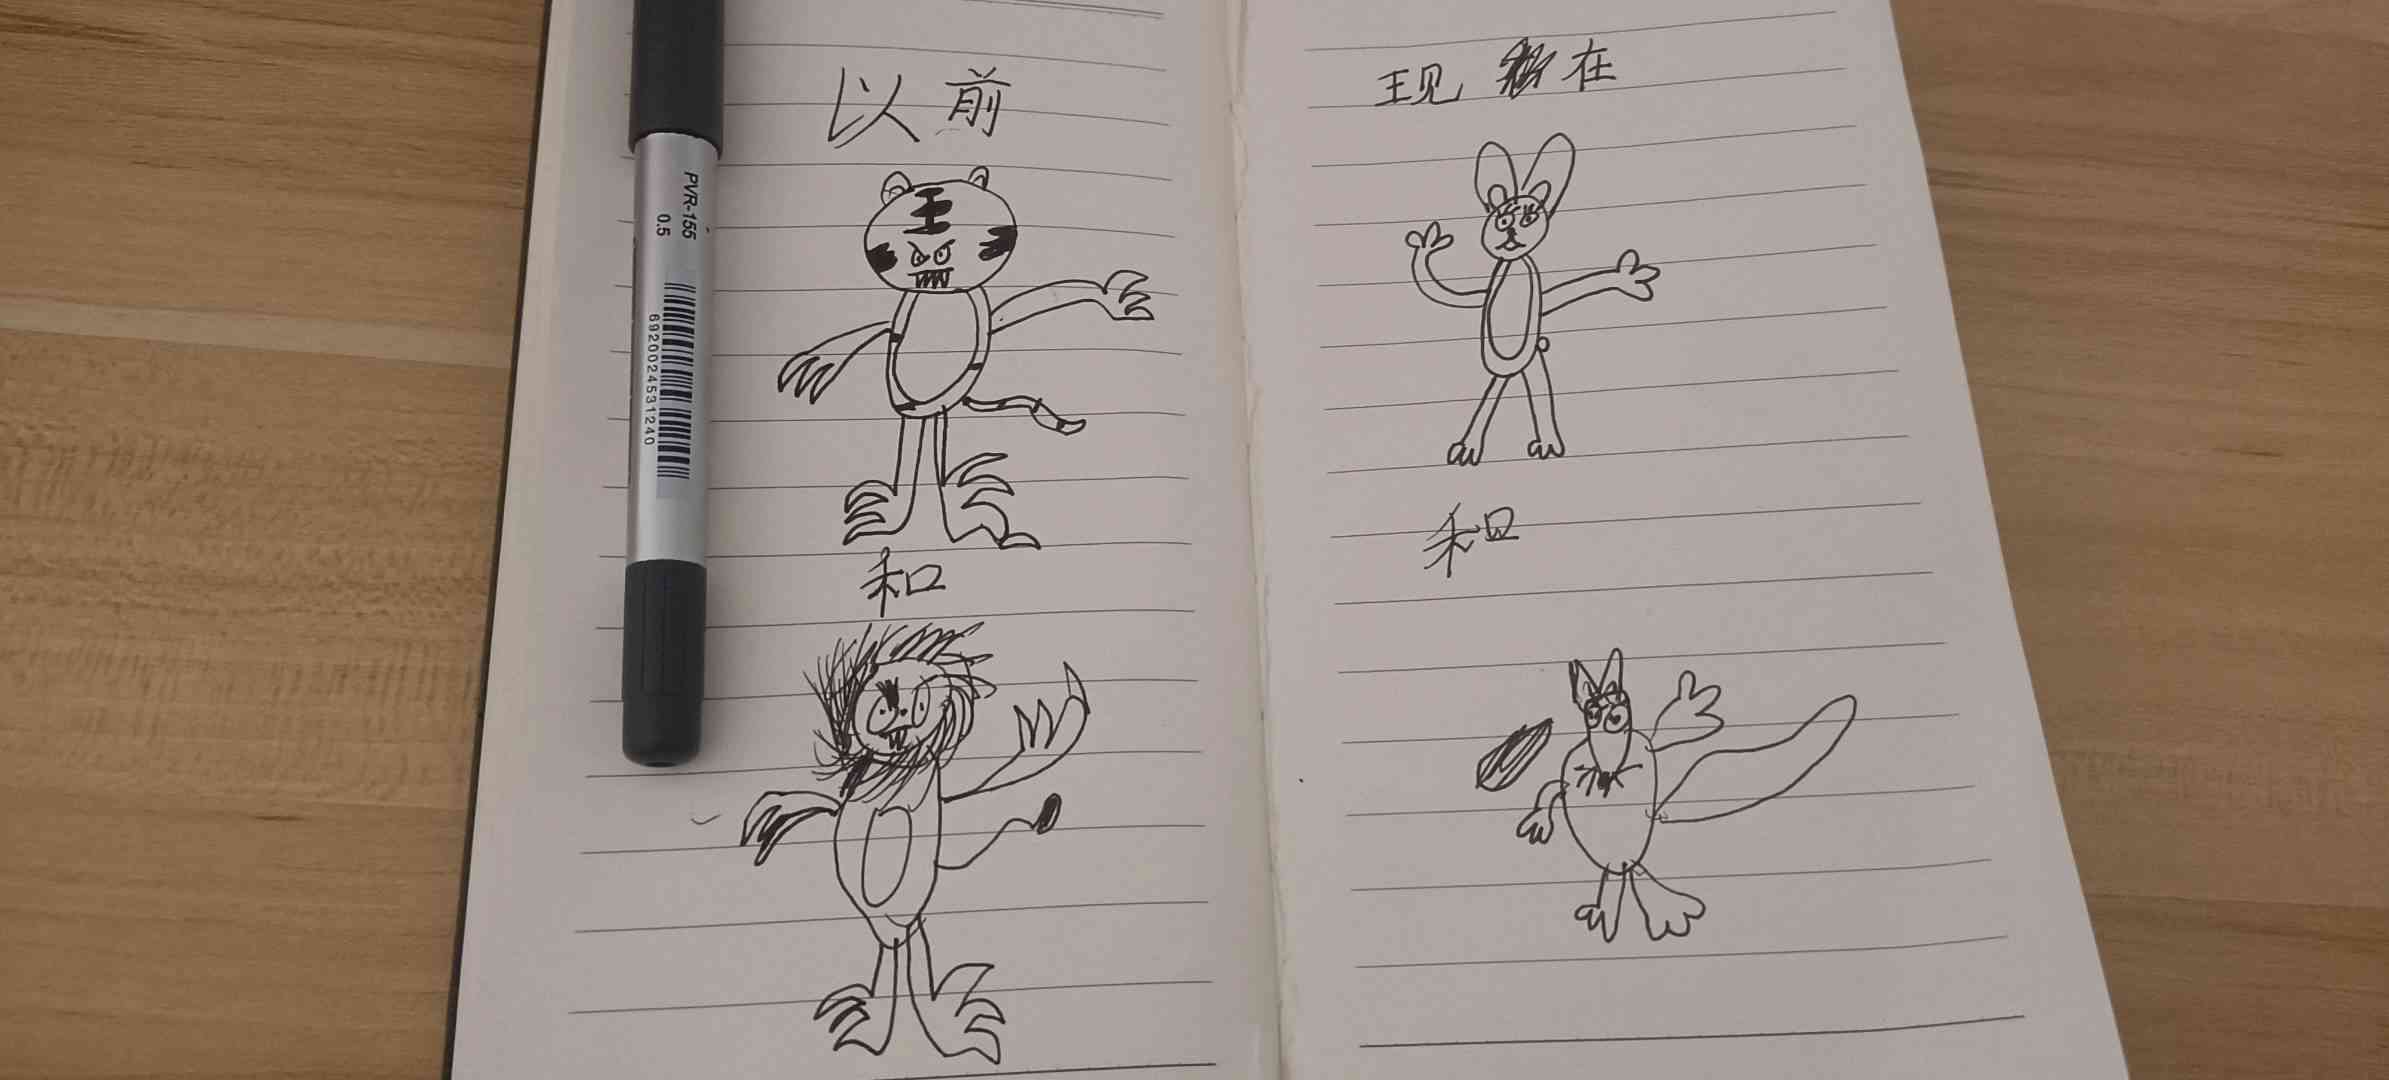 以前
王
和
PVR-155
0.5
6920024531240
现在
和